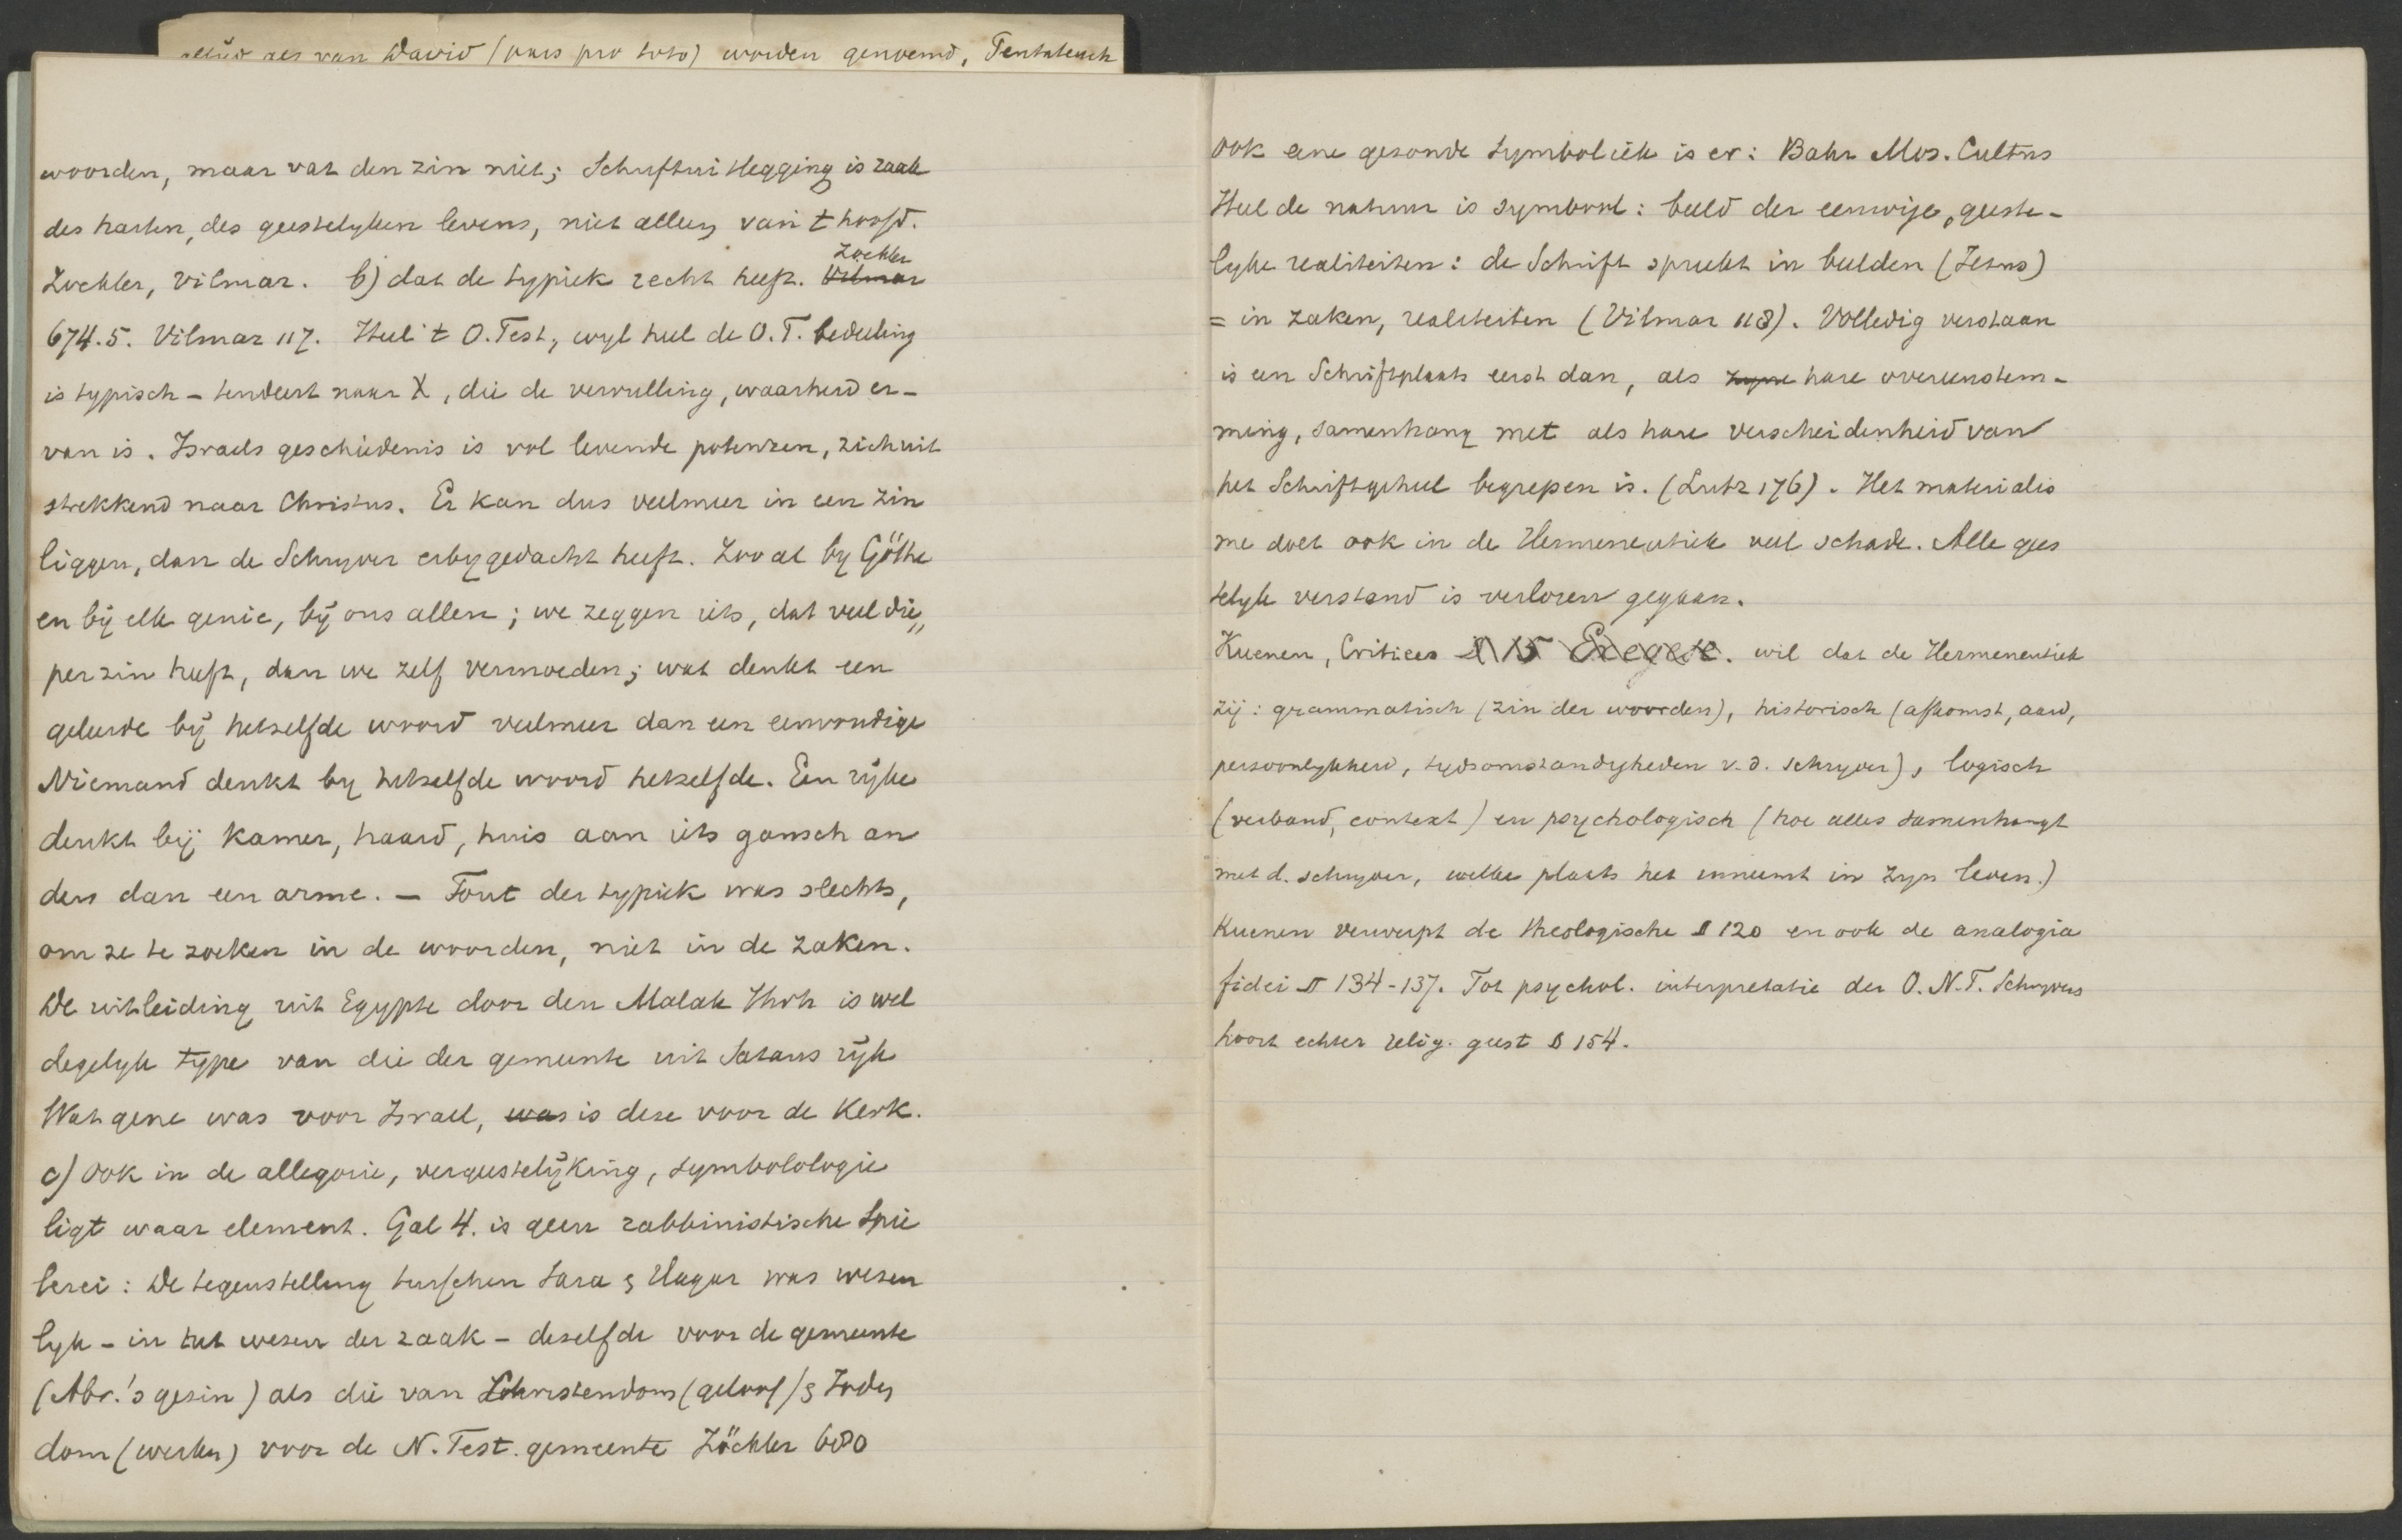 altijd als van David (pars pro toto) worden genoemd, Pentateuch
woorden, maar vat den zin niet; Schriftuitlegging is zaak
des harten, des geestelyken levens, niet alleen van 't hoofd.
Zöckler
Zockler, Vilmar. b) dat de typiek recht heeft. Vilmar
674.5. Vilmar 117. Heel 't O. Test, wyl heel de O.T. bedeeling
is typisch – tendeert naar X, die de vervulling, waarheid er-
van is. Israels geschiedenis is vol levende potenzen, zich uit
strekkend naar Christus. Er kan dus veelmeer in een zin
liggen, dan de Schryver erby gedacht heeft. Zoo al by Göthe
en bij elk genie, bij ons allen; we zeggen iets, dat veel die„
per zin heeft, dan we zelf vermoeden; wat denkt een
geleerde bij hetzelfde woord veelmeer dan een eenvoudige
Niemand denkt by hetzelfde woord hetzelfde. Een rijke
denkt bij kamer, haard, huis aan iets gansch an
ders dan een arme. – Fout der typiek was slechts,
om ze te zoeken in de woorden, niet in de zaken.
De uitleiding uit Egypte door den Malak Jhvh is wel
degelyk type van die der gemeente uit Satans rijk
Wat gene was voor Israel, was is deze voor de Kerk.
c) Ook in de allegorie, vergeestelijking, symbolologie
ligt waar element. Gal 4. is geen rabbinistische Spie
lerei: de tegenstelling tusschen Sara & Hagar was wezen
lyk – in het wezen der zaak – dezelfde voor de gemeente
(Abr.'s gezin) als die van Christendom (geloof) & Joden
dom (werken) voor de N. Test. gemeente Zöckler 680
Ook eene gezonde Symboliek is er: Bahr Mos. Cultus
Heel de natuur is symbool: beeld der eeuwige, geeste-
lyke realiteiten: de Schrift spreekt in beelden (Jezus)
= in zaken, realiteiten (Vilmar 118). Volledig verstaan
is een Schriftplaats eerst dan, als zijne hare overeenstem-
ming, samenhang met als hare verscheidenheid van
het Schriftgeheel begrepen is. (Lutz 176). Het materialis
me doet ook in de Hermeneutiek veel schade. Alle gees
telyk verstand is verloren gegaan.
Kuenen, Critices § 15 Exegese. wil dat de Hermeneutiek
zij: grammatisch (zin der woorden), historisch (afkomst, aard,
persoonlykheid, tydsomstandigheden v. d. schryver), logisch
(verband, context) en psychologisch (hoe alles samenhangt
met d. schryver, welke plaats het inneemt in zyn leven.)
Kuenen verwerpt de theologische § 120 en ook de analogia
fidei § 134-137. Tot psychol. interpretatie der O. N.T. Schryvers
hoort echter relig. geest § 154.